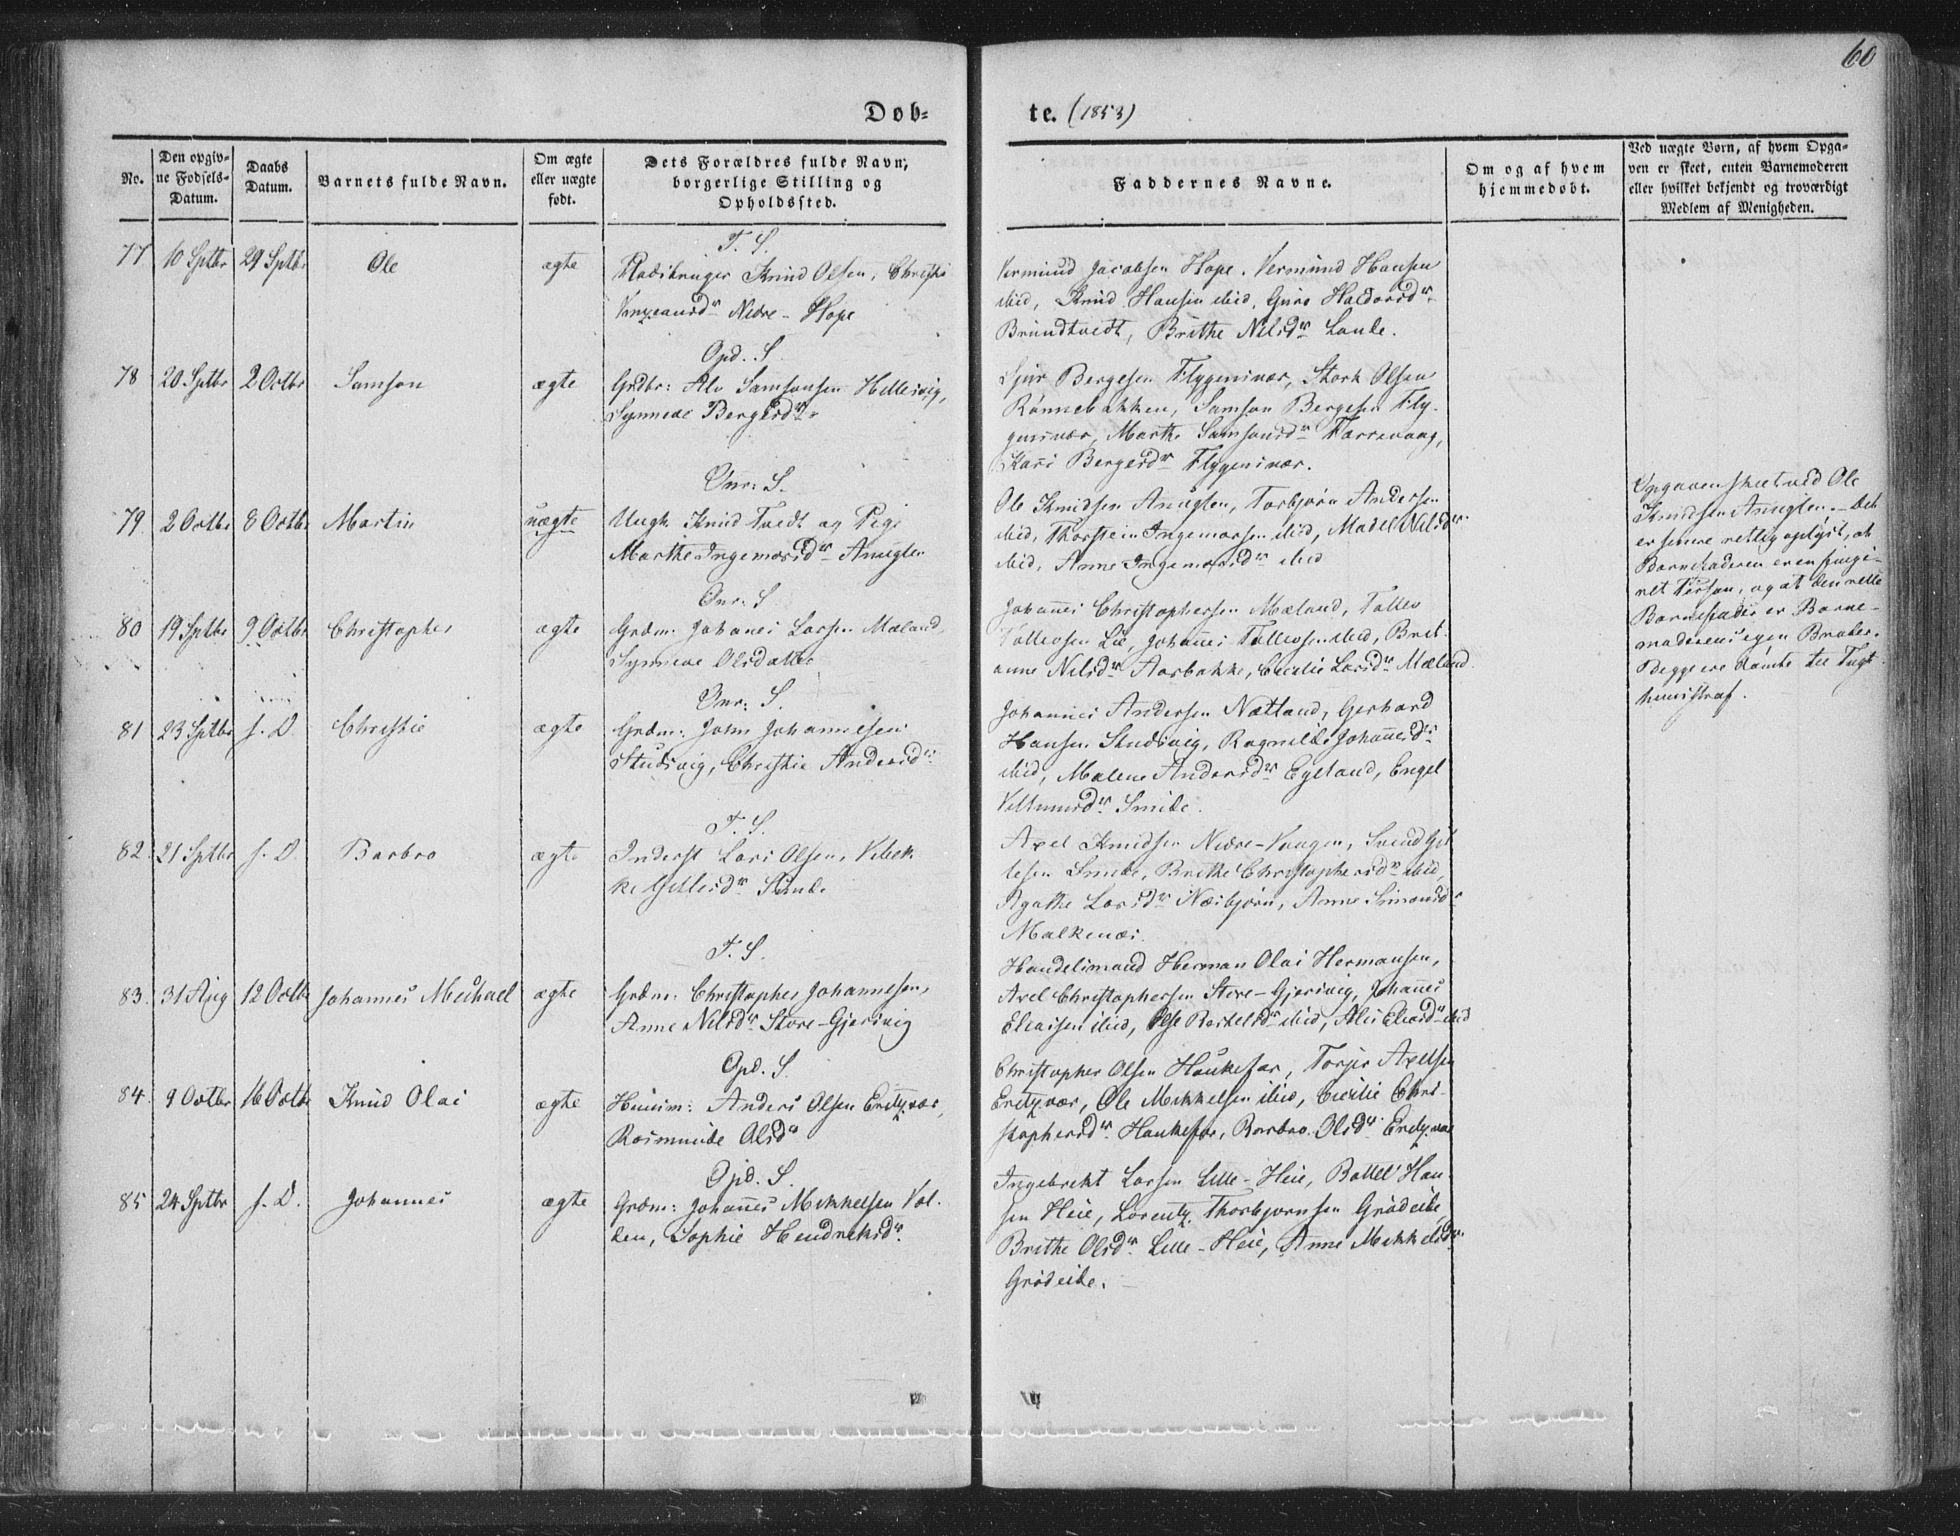 60
Døb-
te. (1853)
No.
Den opgiv-
ne Fødsels-
Datum.
Daabs
Datum.
Barnets fulde Navn.
Om ægte
eller uægte
født.
Dets Forældres fulde Navn,
borgerlige Stilling og
Opholdssted.
Faddernes Navne.
Om og af hvem
hjemmedøbt.
Ved uægte Børn, af hvem Opga-
ven er skeet, enten Barnemoderen
eller hvilket bekjendt og troværdigt
Medlem af Menigheden.
T. S.
77 10 Sptbr 29 Sptbr Ole ægte Knud Olsen, Christi
Nedre-Hope
Vermund Jacobsen Hope, Vermund Hansen
ibid, Knud Hansen ibid, Guro Haldorsdr
Brundtvedt, Brithe Nilsdr Lande.
Opd. S.
78 20 Sptbr 2 Octbr Samson ægte Grdbr: Alv Samsonsen Hellesvig,
Synneve Bergesdr
Sjur Bergesen Flygensvær, Stork Olsen
Rønnebakken, Samson Bergesen Fly-
gensvær, Marthe Samsonsdr Færrevaag,
Kari Bergesdr Flygensvær.
Onr: S.
79 2 Octbr 8 Octbr Martin uægte Ungk Knud Tvedt og Pige
Marthe Ingemarsdr Anuglen
Ole Knudsen Anuglen, Torbjørn Andersen
ibid, Thorstein Ingemarsen ibid, Madel Nilsdr
ibid, Anne Ingemarsdr ibid
Opgaven skeet ved Ole
Knudsen Anuglen. - Det
er senere rettlig oplyst, at
Barnefaderen er en fingi-
ret Person, og at den rette
Barnefader er Barne-
moderens egen Broder.
Begge ere dømte til Tugt-
huusstraf.
Onr: S.
80 19 Sptbr 9 Octbr Christopher ægte Grdm: Johanes Larsen Mæland,
Synneve Olsdatter
Johannes Christophersen Mæland, Tollev
Tollevsen Lie, Johannes Tollevsen ibid, Brit-
anne Nilsdr Aarbakke, Cecilie Larsdr Mæland.
Onr: S.
81 23 Sptbr s. D. Christie ægte Grdm: John Johannesen
Studsvig, Christie Andersdr
Johannes Andersen Nætland, Gerhard
Hansen Studsvig, Ragnilde Johannesdr
ibid, Malene Andersdr Eyeland, Engel
Smide.
T. S.
82 21 Sptbr s. D. Barbro ægte Inderst Lars Olsen, Vibek-
ke Gitlesdr Sunde
Axel Knudsen Nedre-Vaagen, Svend Git-
lesen Smide, Brithe Christophersdr ibid,
Agathe Larsdr Næsbjørn, Anne Simonsdr
Malkenæs.
T. S.
83. 31 Aug 12 Octbr Johannes Mechael ægte Grdm: Christopher Johannesen,
Anne Nilsdr Store-Gjersvig
Handelsmand Herman Olai Hermansen,
Axel Christophersen Store-Gjersvig, Johannes
Eliasen ibid, Else Bertelsdr ibid, Alis Eliasdr ibid
Opd. S.
84. 9 Octbr 16 Octbr Knud Olai ægte Huusm: Anders Olsen Engesvær,
Rasmunde Olsdr
Christopher Olsen Haukefær, Torger Axelsen
Engesvær, Ole Mikkelsen ibid, Cecilie Chri-
stophersdr Haukefær, Barbro Olsdr Engesvær
Opd. S.
85 24 Sptbr s. D. Johannes ægte Grdm: Johannes Mikkelsen Vol-
den, Sophie Hendriksdr
Ingebrekt Larsen Lille-Heie, Bottel Han-
sen Heie, Lorentz Thorbjørnsen Grødeide,
Brithe Olsdr Lille-Heie, Anne Mikkelsdr
Grødeide.